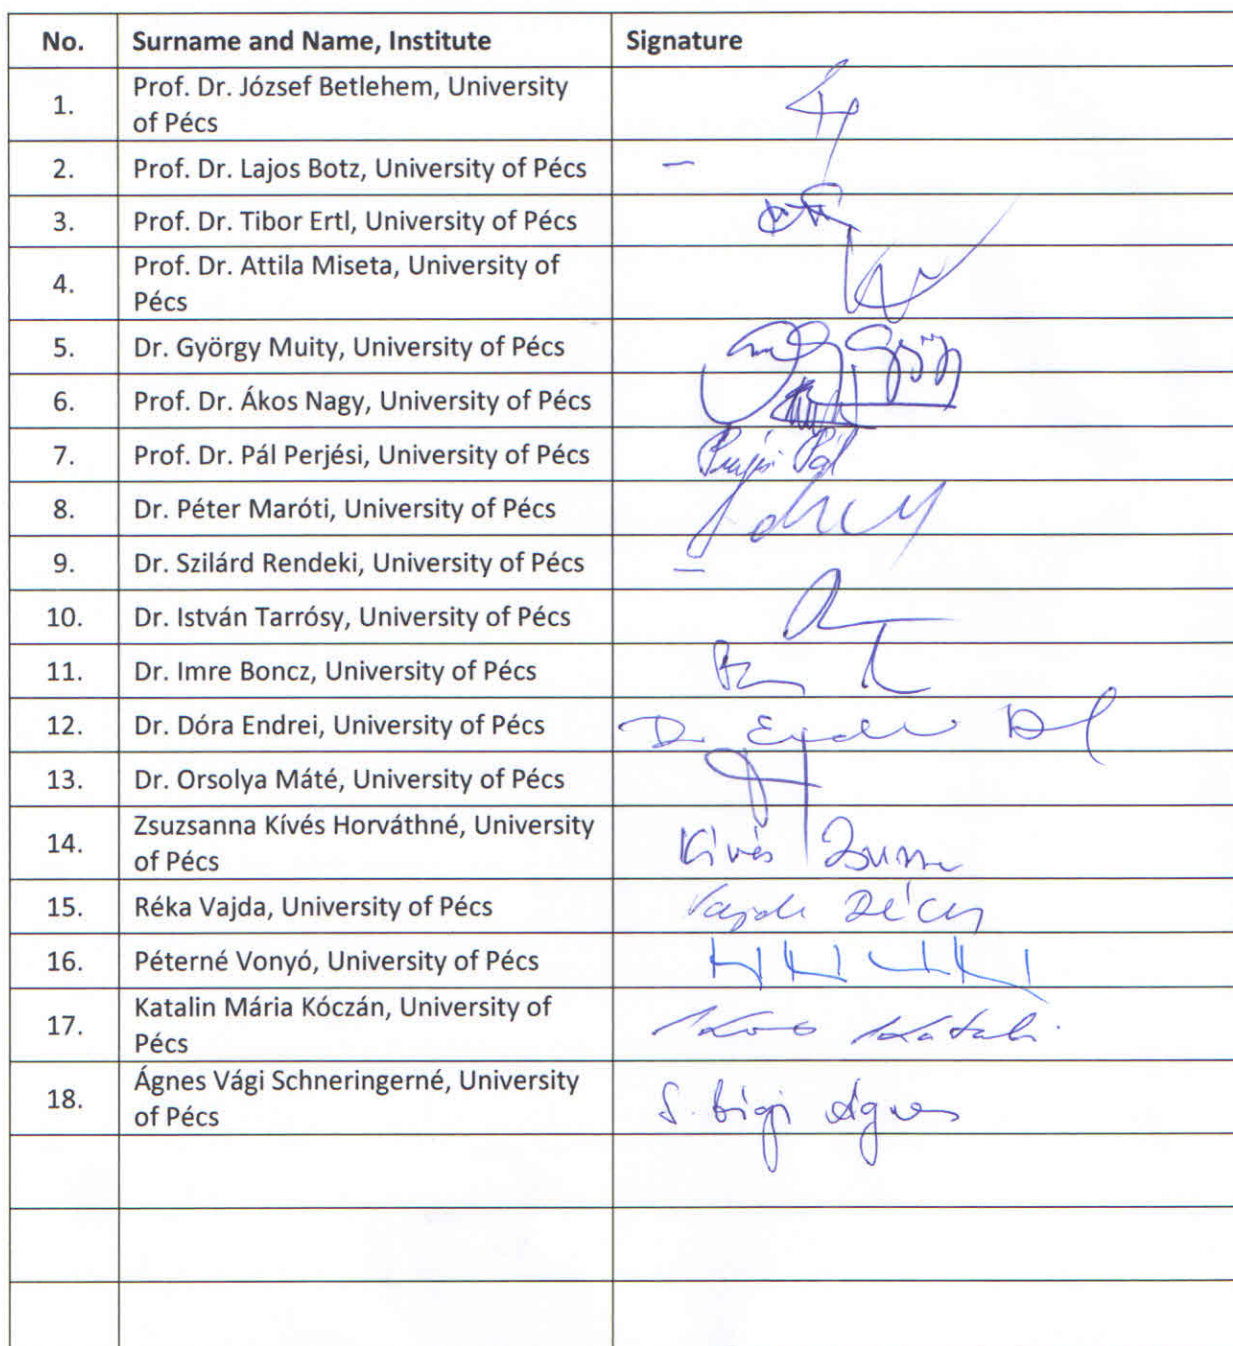 No. Surname and Name, Institute Signature
1. Prof. Dr. József Betlehem, University
of Pécs
2. Prof. Dr. Lajos Botz, University of Pécs –
3. Prof. Dr. Tibor Ertl, University of Pécs
4. Prof. Dr. Attila Miseta, University of
Pécs
5. Dr. György Muity, University of Pécs
6. Prof. Dr. Ákos Nagy, University of Pécs
7. Prof. Dr. Pál Perjési, University of Pécs Perjési Pál
8. Dr. Péter Maróti, University of Pécs
9. Dr. Szilárd Rendeki, University of Pécs –
10. Dr. István Tarrósy, University of Pécs
11. Dr. Imre Boncz, University of Pécs
12. Dr. Dóra Endrei, University of Pécs
13. Dr. Orsolya Máté, University of Pécs
14. Zsuzsanna Kívés Horváthné, University
of Pécs Kívés
15. Réka Vajda, University of Pécs Vajda
16. Péterné Vonyó, University of Pécs
17. Katalin Mária Kóczán, University of
Pécs Katalin
18. Ágnes Vági Schneringerné, University
of Pécs S. Vági Ágnes